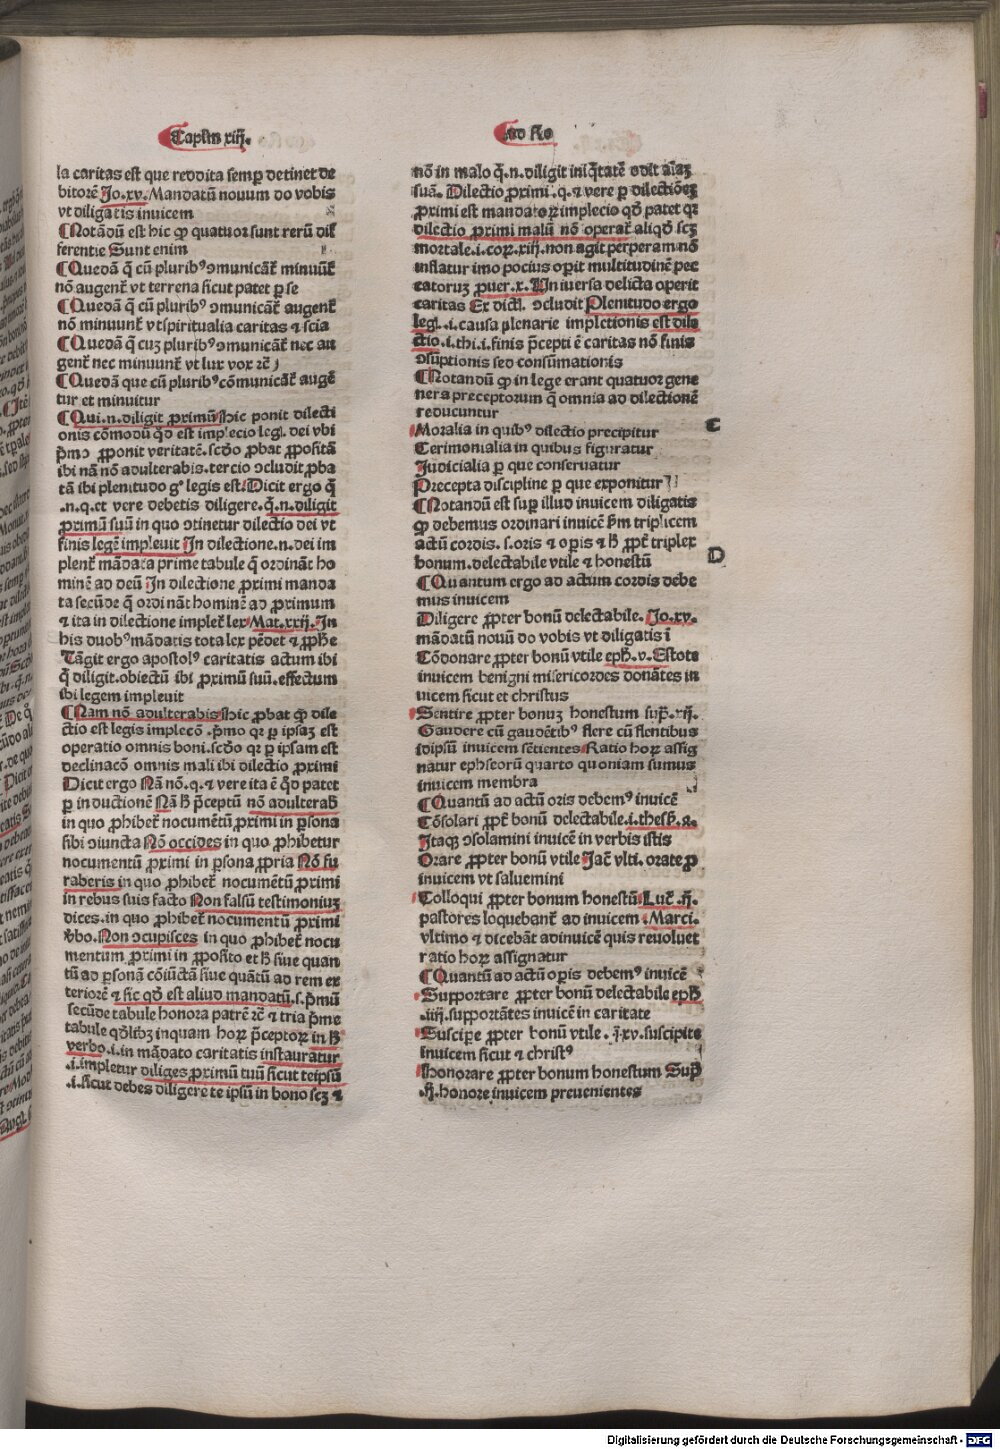 Caplm xiij.
la caritas est que reddita semꝑ detinet de
bitorē Jo.xv. Mandatū nouum do vobis
vt diligatis invicem
¶Notādū est hic ꝙ quatuor sunt rerū dif
ferentie Sunt enim
¶Quedā q̄ cū pluribꝰ ꝯmunicāt̄ minuūt̄
nō augent̄ vt terrena sicut patet ꝑ se
¶Quedā q̄ cū pluribꝰ ꝯmunicāt̄ augent̄
nō minuunt̄ vt spiritualia caritas ⁊ scīa
¶Quedā q̄ cuz pluribꝰ ꝯmunicāt̄ nec au
gent̄ nec minuunt̄ vt lux vox rē
¶Quedā que cū pluribꝰ cōmunicāt̄ augē
tur et minuitur
¶Qui.n.diligit ꝓximū hic ponit dilecti
onis cōmodū qd̄ est implecio legꝭ. dei vbi
p̄mo ꝓponit veritatē.scd̄o ꝓbat ꝓpositā
ibi nā nō adulterabis.tercio ꝯcludit ꝓba
tā ibi plenitudo gͦ legis est. Dicit ergo q̄
.n.q.et vere debetis diligere.q̄.n.diligit
ꝓximū suū in quo ꝯtinetur dilectio dei vt
finis legē impleuit In dilectione.n.dei im
plent̄ mādata prime tabule q̄ ordināt ho
minē ad deū In dilectione ꝓximi manda
ta secūde q̄ ordināt hominē ad ꝓximum
⁊ ita in dilectione implet̄ lex Mat.xxij. In
his duobꝰ mādatis tota lex pēdet ⁊ ꝓph̄e
Tāgit ergo apostolꝰ caritatis actum ibi
q̄ diligit.obiectū ibi ꝓximū suū.effectum
ibi legem impleuit
¶Nam nō adulterabis hic ꝓbat ꝙ dile
ctio est legis implecō .p̄mo qꝛ ꝑ ipsaꝫ est
operatio omnis boni.scd̄o qꝛ ꝑ ipsam est
declinacō omnis mali ibi dilectio ꝓximi
Dicit ergo Nā nō.q.⁊ vere ita ē q̄d patet
ꝑ inductionē Nā h̄ p̄ceptū nō adulterab̄
in quo ꝓhibet̄ nocumētū ꝓximi in ꝑsona
sibi ꝯiuncta Nō occides in quo ꝓhibetur
nocumentū ꝓximi in ꝑsona ꝓpria Nō fu
raberis in quo ꝓhibet̄ nocumētū ꝓximi
in rebus suis facto Non falsū testimoniuꝫ
dices.in quo ꝓhibet̄ nocumentū ꝓximi
v̄bo.Non ꝯcupisces in quo ꝓhibet̄ nocu
mentum ꝓximi in ꝓposito et h̄ siue quan
tū ad ꝑsonā cōiūctā siue quātū ad rem ex
teriorē ⁊ sic qd̄ est aliud mandatū.s.p̄mū
secūde tabule honora patrē rē ⁊ tria p̄me
tabule qd̄libꝫ inquam hoꝝ p̄ceptoꝝ in h̄
verbo.i.in mādato caritatis instauratur
.i.impletur diliges ꝓximū tuū sicut teipsū
.i.sicut debes diligere te ipsū in bono scꝫ ⁊
ad Ro
nō in malo q̄.n.diligit iniq̄tatē odit aīaꝫ
suā. Dilectio ꝓximi .q.⁊ vere ꝑ dilectiōeꝫ
ꝓximi est mandatoꝝ implecio qd̄ patet qꝛ
dilectio ꝓximi malū nō operat̄ aliqd̄ scꝫ
mortale.i.coꝝ.xiij.non agit perperam nō
inflatur imo pocius oꝑit multitudinē pec
catoruꝫ ꝓuer.x.Vniuersa delicta operit
caritas Ex dictꝭ. ꝯcludit Plenitudo ergo
legꝭ.i.causa plenarie impletionis est dile
ctio.i.thi.i.finis p̄cepti ē caritas nō finis
ꝯsūptionis sed consūmationis
¶Notandū ꝙ in lege erant quatuor gene
nera preceptorum q̄ omnia ad dilectionē
reducuntur
Moralia in quibꝰ dilectio precipitur
C
Cerimonialia in quibus figuratur
Judicialia ꝑ que conseruatur
Precepta discipline ꝑ que exponitur
¶Notandū est suꝑ illud invicem diligatis
ꝙ debemus ordinari invicē p̄m triplicem
actū cordis. s.oris ⁊ oꝑis ⁊ h̄ ꝓpt̄ triplex
bonum.delectabile vtile ⁊ honestū
D
¶Quantum ergo ad actum cordis debe
mus invicem
Diligere ꝓpter bonū delectabile. Jo.xv.
mādatū nouū do vobis vt diligatis ī
Cōdonare ꝓpter bonū vtile eph̄.v.Estote
invicem benigni misericordes donātes in
vicem sicut et christus
Sentire ꝓpter bonuꝫ honestum sup̄.xij.
Gaudere cū gaudētibꝰ flere cū flentibus
idipsū invicem sētientes Ratio hoꝝ assig
natur ephseorū quarto quoniam sumus
invicem membra
¶Quantū ad actū oris debemꝰ invicē
Cōsolari ꝓpt̄ bonū delectabile.i.thesp̄.4.
Itaqꝫ ꝯsolamini invicē in verbis istis
Orare ꝓpter bonū vtile Jac̄ vlti. orate ꝓ
invicem vt saluemini
Colloqui ꝓpter bonum honestū Luc̄ .ij.
pastores loquebant̄ ad invicem Marci.
vltimo ⁊ dicebāt adinvicē quis reuoluet
ratio hoꝝ assignatur
¶Quantū ad actū oꝑis debemꝰ invicē
Supportare ꝓpter bonū delectabile eph̄
.iiij.supportātes invicē in caritate
Suscipe ꝓpter bonū vtile .ij.xv.suscipite
invicem sicut ⁊ christꝰ
Honorare ꝓpter bonum honestum Sup̄
.ij.honore invicem preuenientes
Digitalisierung gefördert durch die Deutsche Forschungsgemeinschaft - DFG